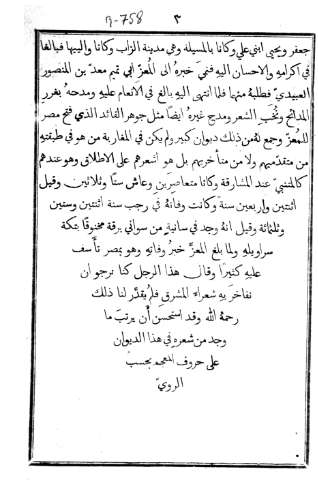 ٣ 7-758
جعفر ويحيى ابني علي وكانا بالمسيلة وهي مدينة الزاب وكانا والييها فبالغا
في اكرامه والاحسان اليه فنمي خبره الى المعزّ ابي تميم معدّ بن المنصور
العبيديّ فطلبه منهما فلما انتهى اليه بالغ في الانعام عليه ومدحه بغرر
المدائح ونُخَب الشعر ومدح غيرهُ ايضًا مثل جوهر القائد الذي فتح مصر
للمعزّ وجمع لهُ من ذلك ديوان كبير ولم يكن في المغاربة من هو في طبقتهِ
من متقدّميهم ولا من متأخريهم بل هو اشعرهم على الاطلاق وهو عندهم
كالمتنبي عند المشارقة وكانا متعاصرين وعاش ستًّا وثلاثين وقيل
اثنتين واربعين سنة وكانت وفاتهُ في رجب سنة اثنتين وستين
وثلثمائة وقيل انهُ وجد في سانية من سواني برقة مخنوقًا بتكة
سراويلهِ ولما بلغ المعزّ خبرُ وفاتهِ وهو بمصر تأسف
عليهِ كثيرًا وقال هذا الرجل كنا نرجو ان
نفاخر بهِ شعراء المشرق فلم يُقدَّر لنا ذلك
رحمهُ الله وقد استحسن أن يرتب ما
وجد من شعرهِ في هذا الديوان
على حروف المعجم بحسب
الرويّ